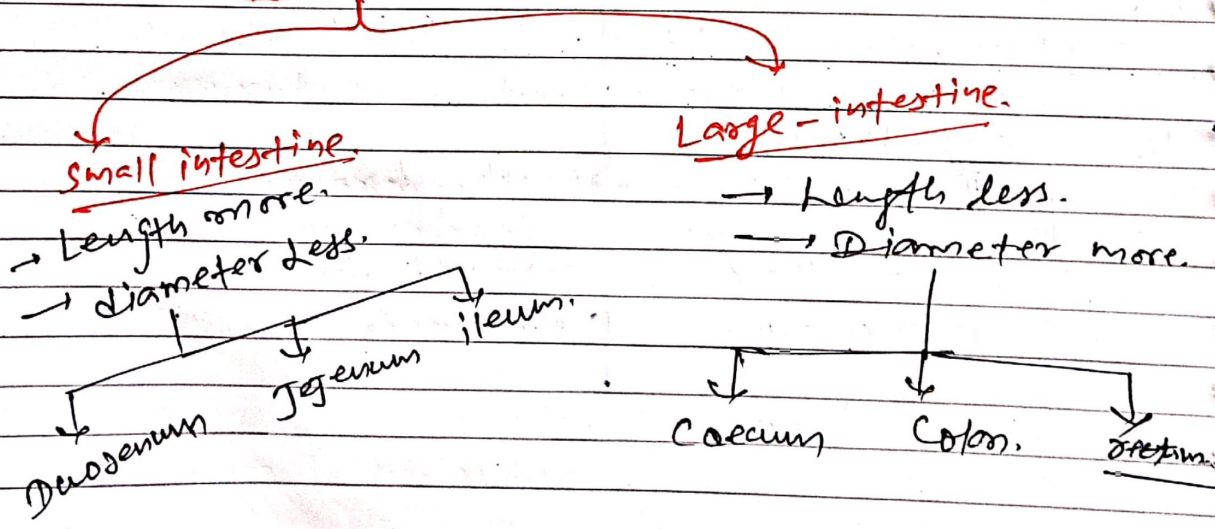 Small intestine.
→ Length more.
→ diameter Less.
Duodenum
Jejenum
ileum.
Large - intestine.
→ Length less.
→ Diameter more.
Caecum
Colon.